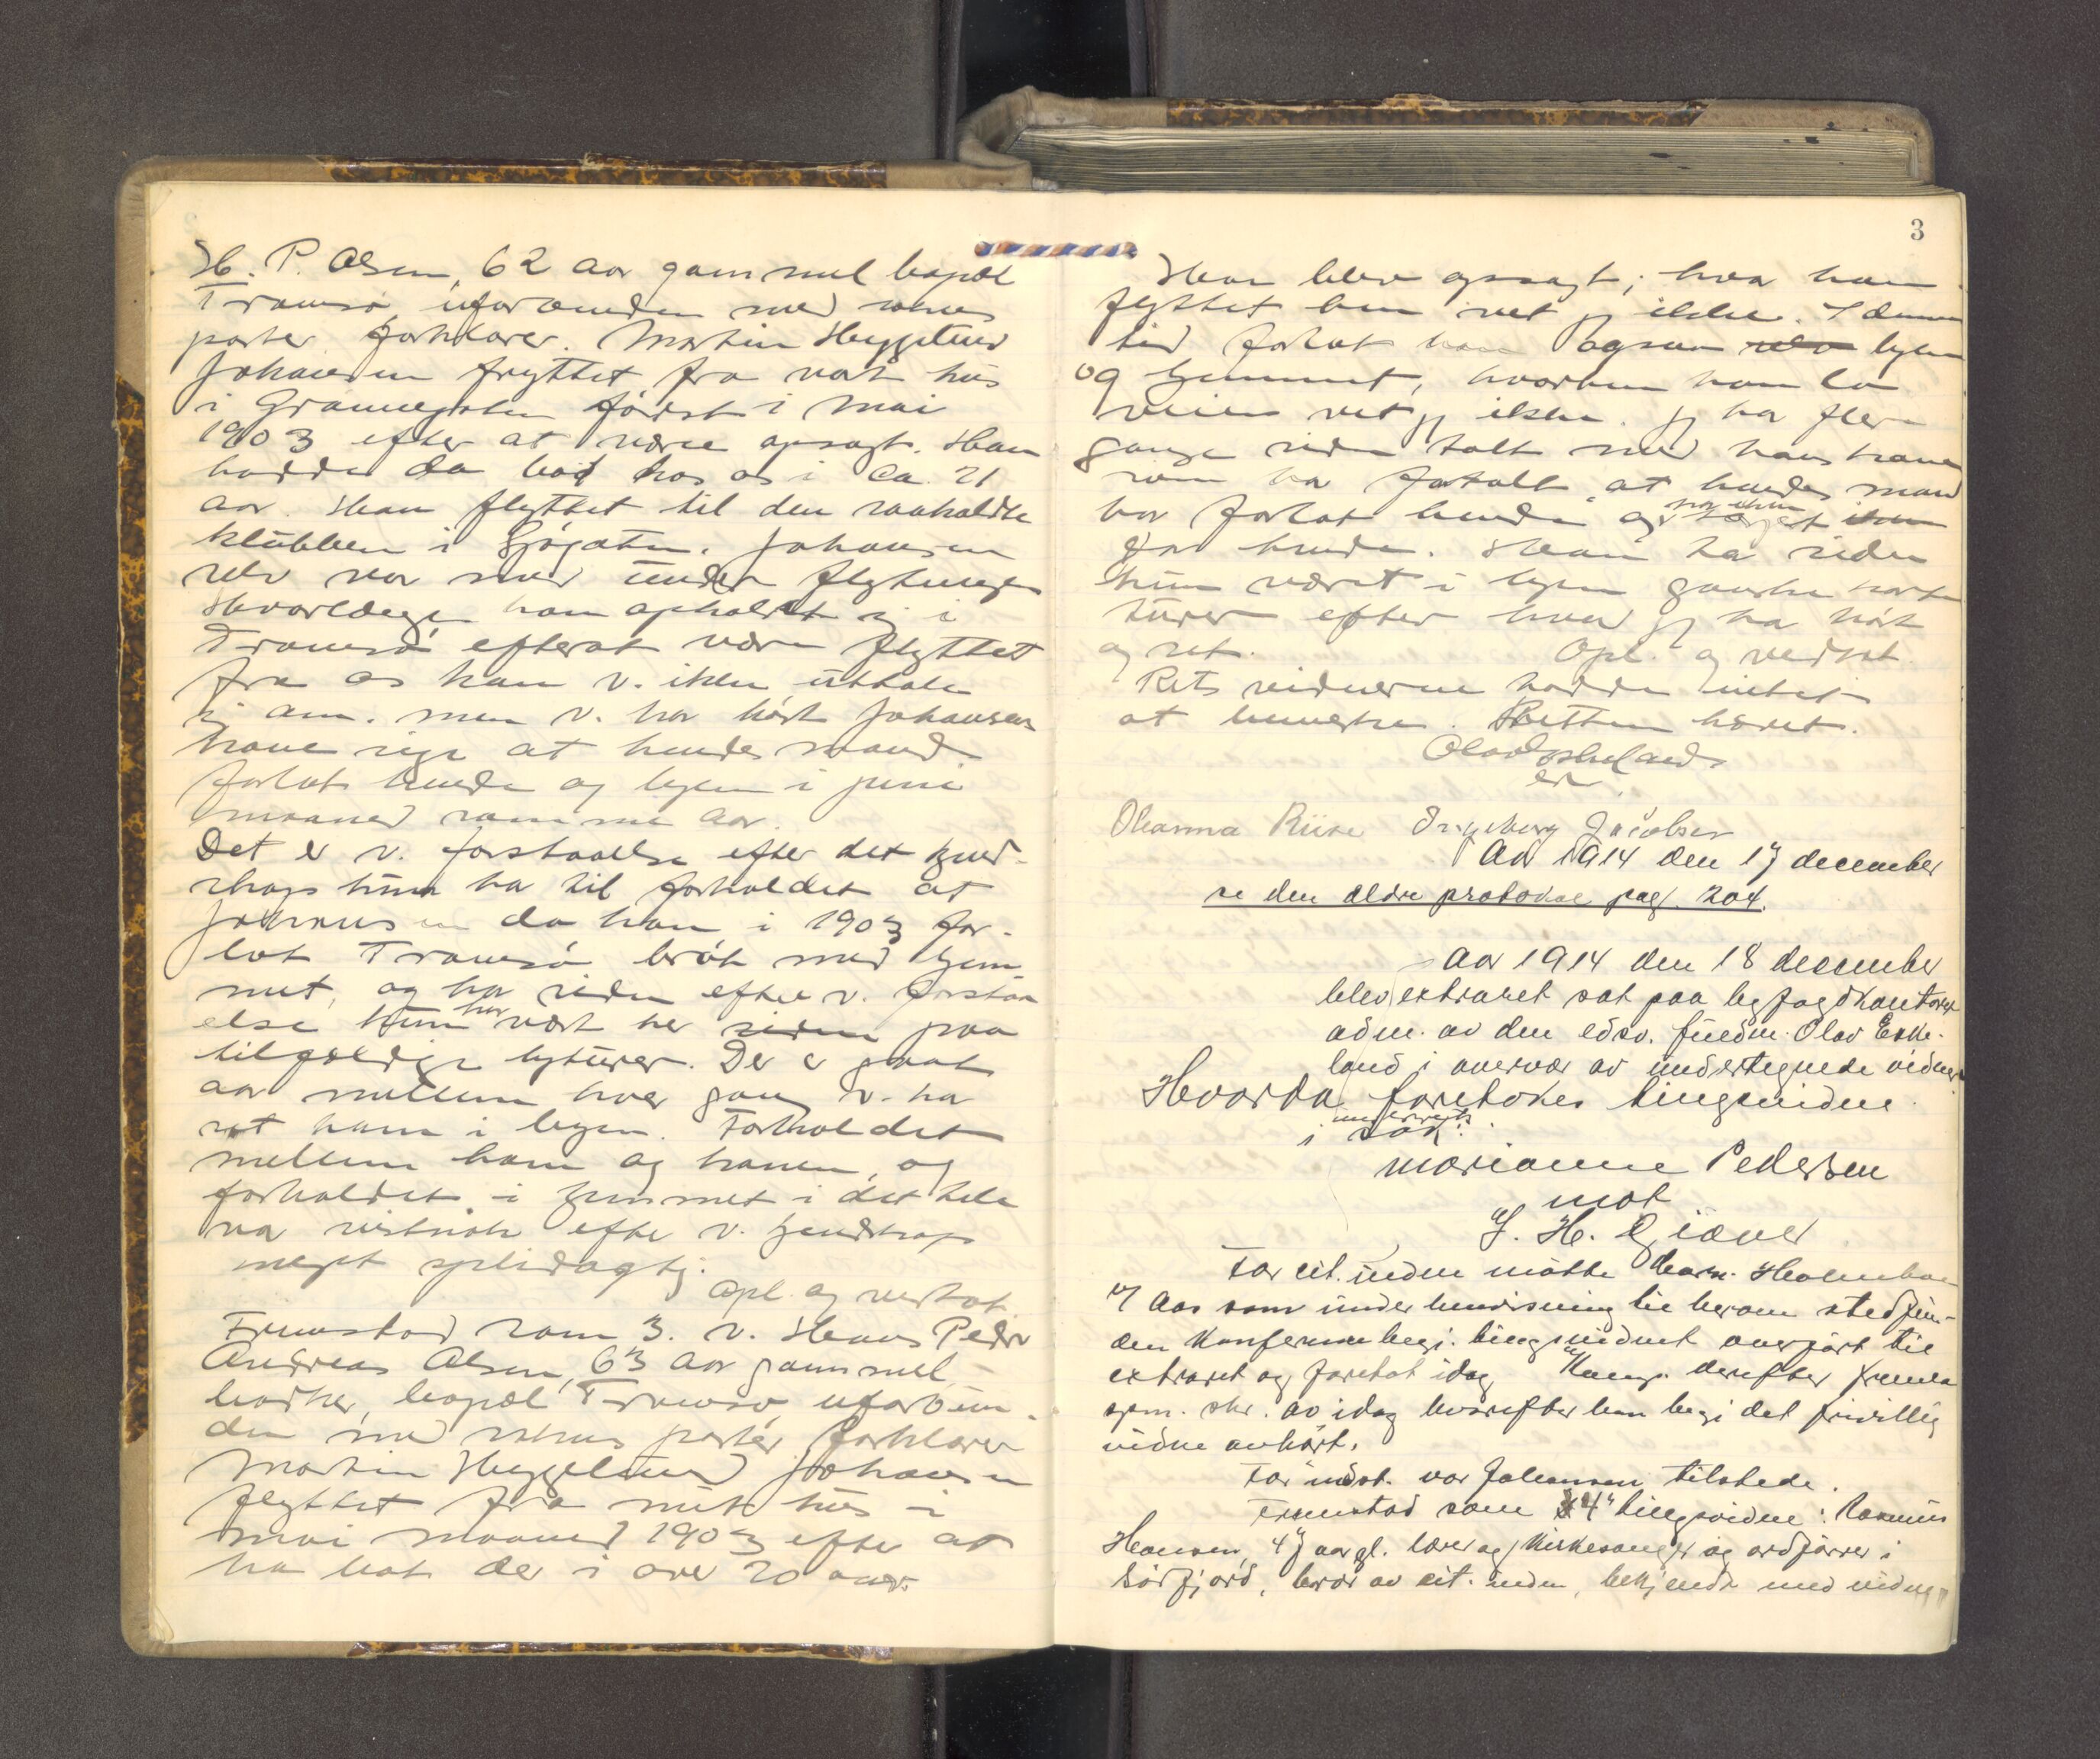 H. P. Olsen, 62 aar gammel bopæl
Tromsø uforbunden med sakens
parter forklarer. Martin Heggelund
Johansen flyttet fra vort hus
i Grønnegaten først i mai
1903 efter at være opsagt. Han
hadde da bod hos os i ca. 21
aar. Han flyttet til den saakaldte
klubben i Sjøgaten. Johansen
selv var med under flytningen
Hvorlænge han opholdt sig i
Tromsø efterat være flyttet
fra os kan v. ikke uttale
sig om. men v. har hørt Johansens
kone sige at hendes mand
forlot hende og byen i juni
maaned samme aar.
Det er v. forstaaelse efter det kjend-
skap hun har til forholdet at
Johansen da han i 1903 for-
lot Tromsø brøt med hjem
met, og har siden efter v. forstaa
else kun har vært her siden paa
tilfældige byturer. Der er gaat
aar mellem hver gang v. har
set ham i byen. Forholdet
mellem ham og konen, og
forholdet i hjemmet i det hele
var vistnok efter v. kjendskap
meget splidagtig.
Opl. og vedtat.
Fremstod som 3. v. Hans Peder
Andreas Olsen, 63 aar gammel,
bødker, bopæl Tromsø, uforbun-
den med sakens parter forklarer
Martin Heggelund Johansen
flyttet fra mit hus i
mai maaned 1903 efter at
ha bot der i over 20 aar.
3
Han blev opsagt; hvor han
flyttet hen vet jeg ikke. I denne
tid forlot han ogsaa selv byen
og hjemmet, hvorhen han la
veien vet jeg ikke. Jeg har flere
gange siden talt med hans kone
som har fortalt at hendes mand
har forlat hende og sørget
for hende. Han har siden
kun været i byen ganske korte
turer efter hvad jeg har hørt
og set. Opl. og vedtat.
Rets vidnerne hadde intet
at bemerke. Retten hævet.
Olav Eskeland
ed.
Olianna Riise Ingeborg Jacobsen
Aar 1914 den 17 december
se den ældre protokol pag. 204.
Aar 1914 den 18 december
blev extraret sat paa byfogdkontoret
adm. av den edsv. fuldm. Olav Eske-
land i overvær av undertegnede vidner
Hvorda foretokes tingsvidne
i sak:
Marianne Pedersen
mot
J. H. Giæver
For cit.inden møtte Holmboe
Aas som under henvisning til herom stedfun-
den konferanse beg. tingsvidnet overført til
extraret og foretat idag derefter fremla
spm. skr. av idag hvorefter han beg. det frivillig
vidne anhørt.
For indst. var Johansen tilstede.
Fremstod som 4" tingsvidne: Rasmus
Hansen, 47 aar gl. lærer og kirkesanger og ordfører i
Sørfjord, bror av cit.inden, bekjendt med vidne